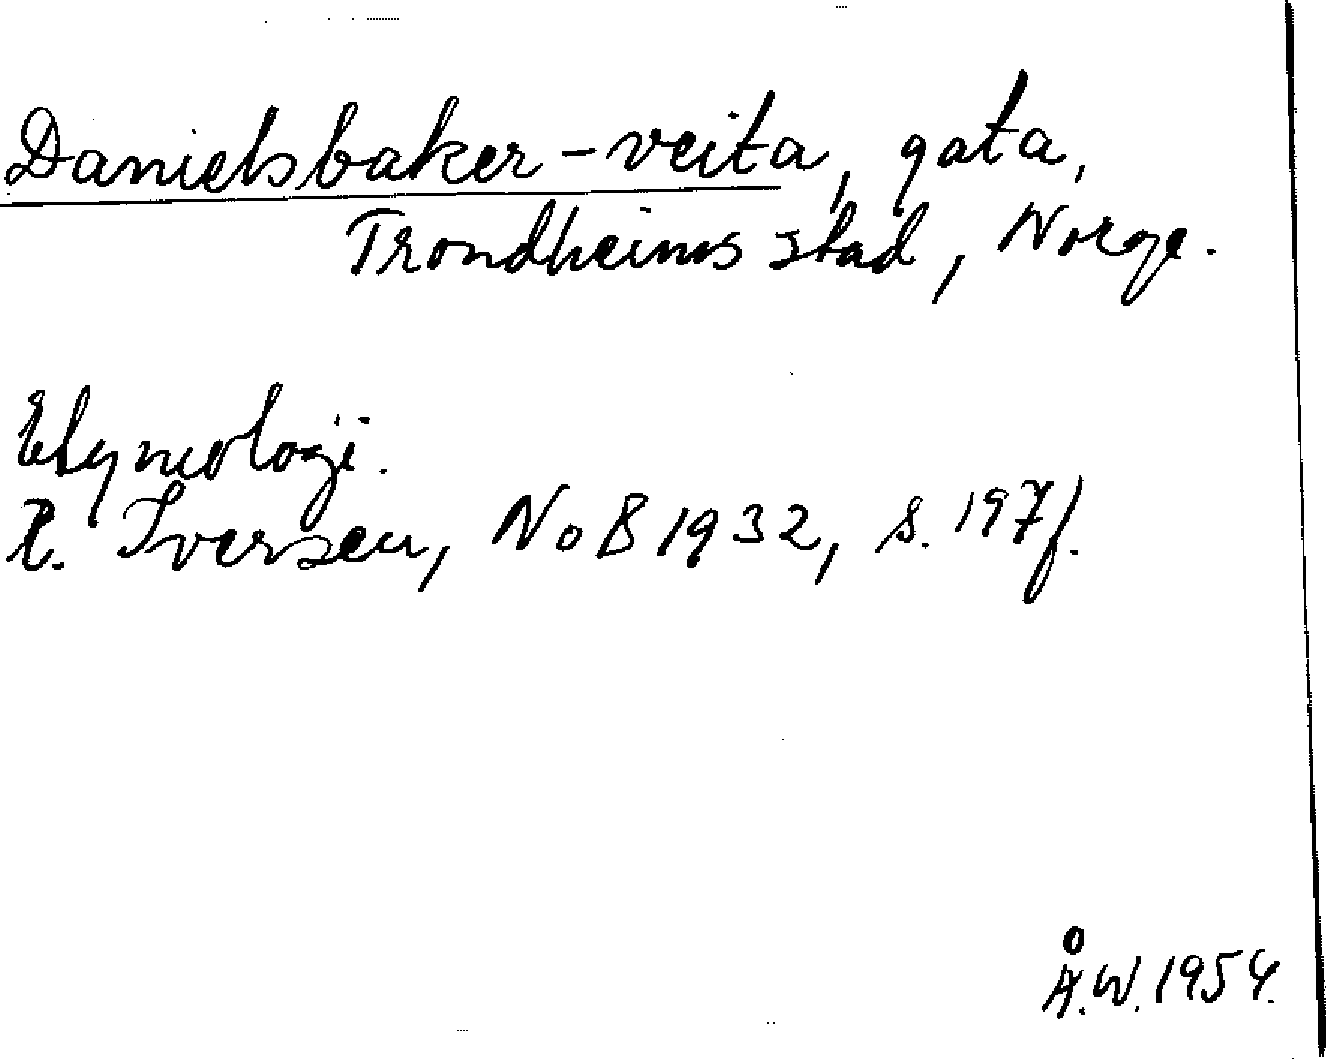 Danielsbaker-veita, gata,
Trondheims stad, Norge.
Etymologi.
R. Iversen, NoB 1932, s. 197 f.
Å.W. 1954.